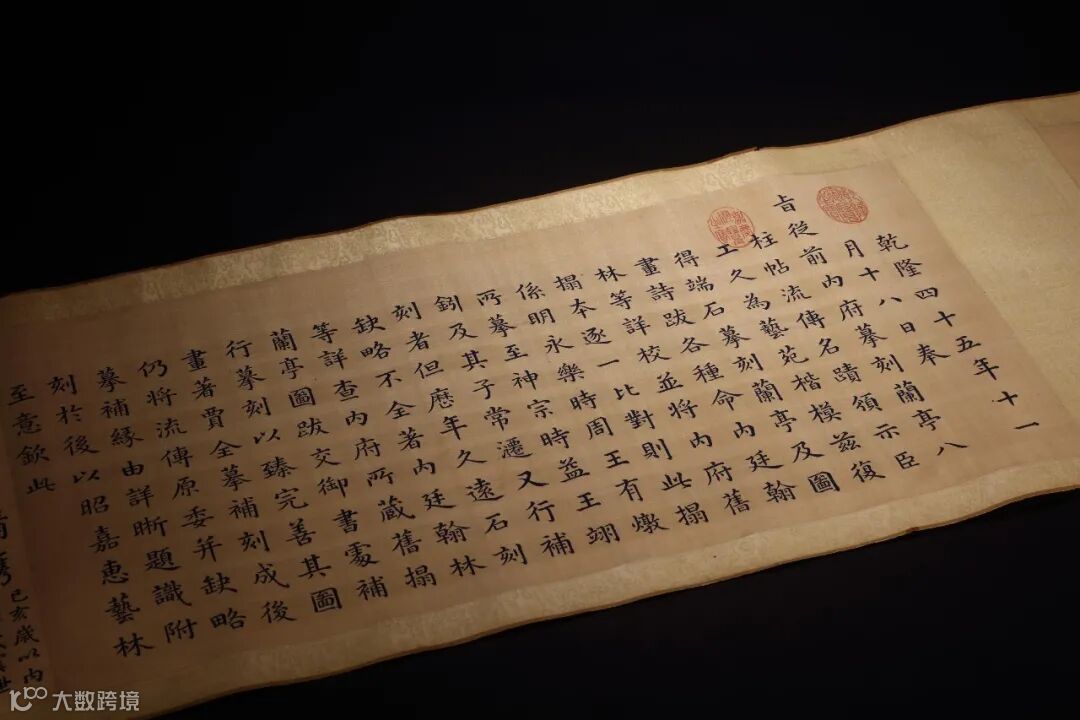 乾隆四十五年十一
月十八日奉
旨從前內府摹刻蘭亭八
柱帖流傳名蹟頒示臣
工久為藝苑楷模茲復
得端石摹刻蘭亭及圖
畫詩跋各種命內廷翰
林等詳校並將內府舊
搨本逐一比對則此搨
係明永樂時周王有燉
所摹至神宗時益王翊
鈏及其子常遷又行補
刻者但歷年久遠石刻
缺略不全著內廷翰林
等詳查內府所藏舊搨
蘭亭圖跋交御書處補
行摹刻以臻完善其圖
畫著賈全摹補刻成後
仍將流傳原委并缺略
摹補緣由詳晰題識附
刻於後以昭嘉惠藝林
至意欽此
已亥歲以內
大数跨境